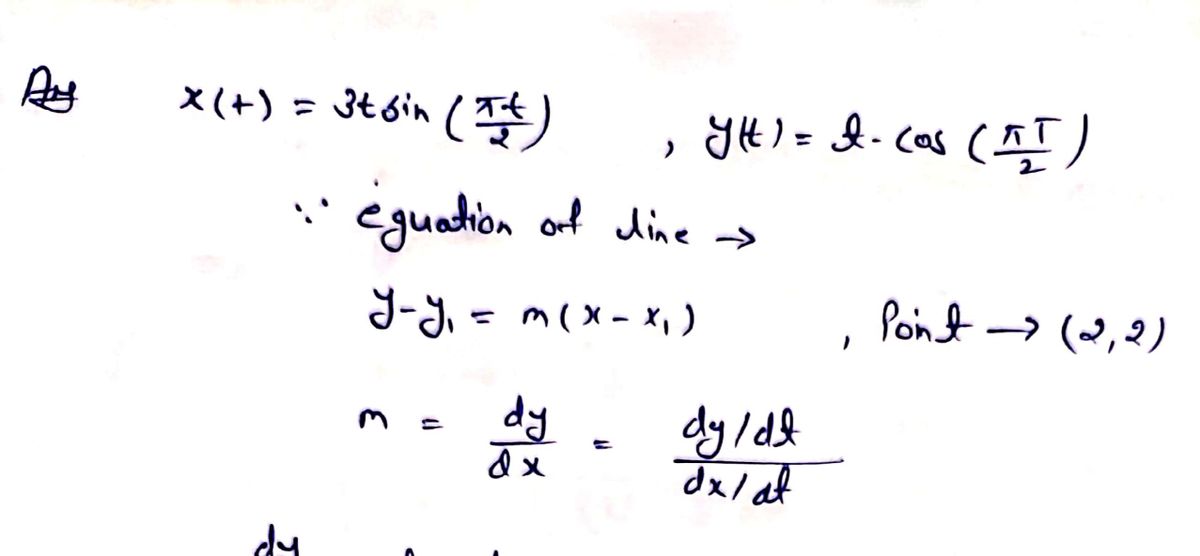 Ans x(t) = 3t sin (πt/2) , y(t) = t - cos (πT/2)
∵ equation of line →
y-y₁ = m(x - x₁) , Point → (2,2)
m = dy/dx = dy/dt / dx/dt
dy